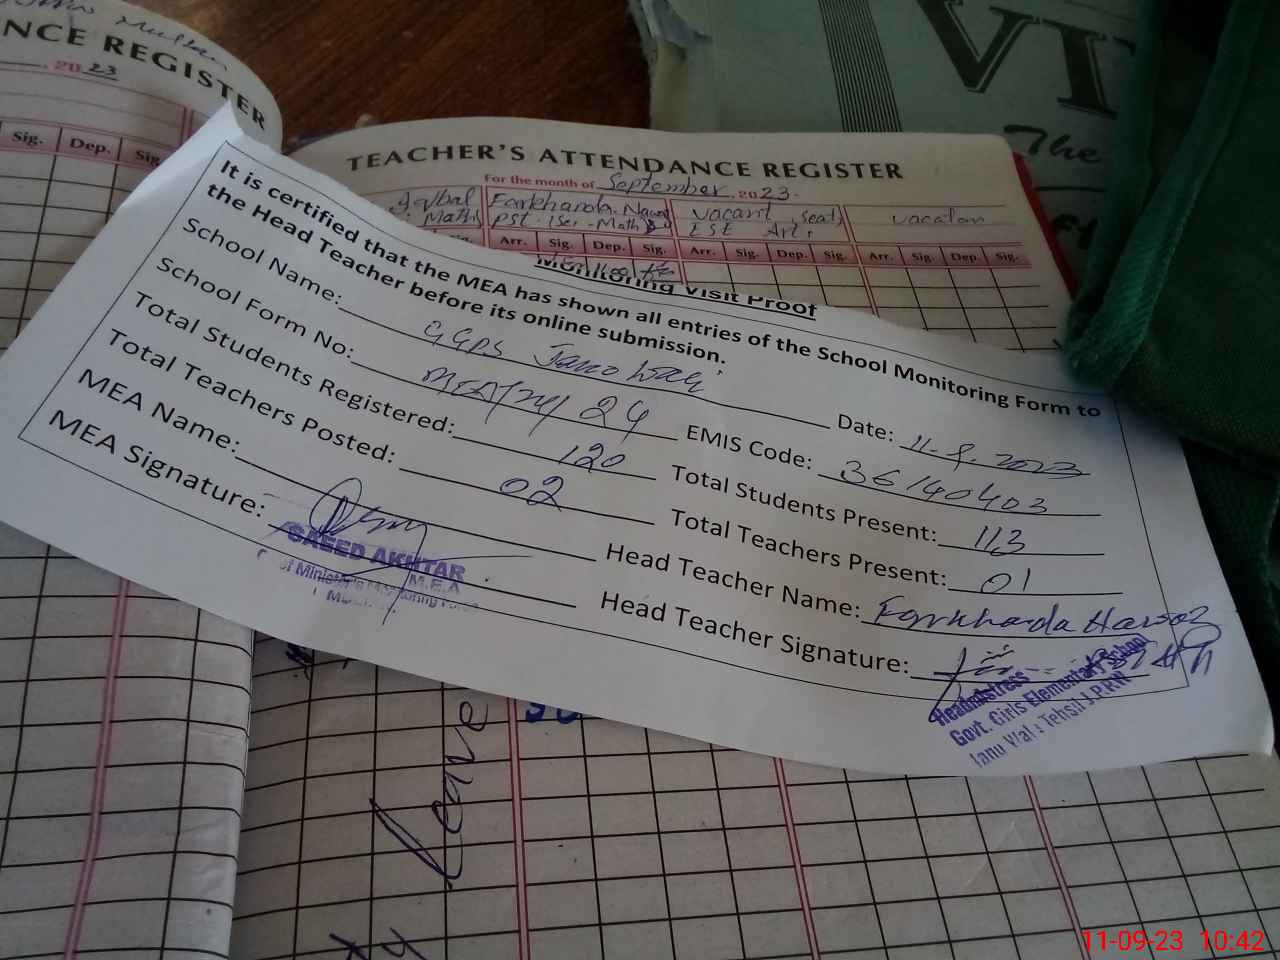 NCE REGISTER
2023
Sig. Dep. Sig.
VI
The
TEACHER'S ATTENDANCE REGISTER
For the month of September, 2023.
Iqbal Farkhanda vacant seat vacation
Maths PST EST Arts
Arr. Sig. Dep. Sig. Arr. Sig. Dep. Sig. Arr. Sig. Dep. Sig.
Monitoring Visit Proof
It is certified that the MEA has shown all entries of the School Monitoring Form to
the Head Teacher before its online submission.
School Name: GGPS Date: 11-9-2023
School Form No: 24 EMIS Code: 36140403
Total Students Registered: 120 Total Students Present: 113
Total Teachers Posted: 02 Total Teachers Present: 01
MEA Name: Head Teacher Name: Farkhanda
MEA Signature: Head Teacher Signature:
SAEED AKHTAR
M.E.A
Headmistress
Govt. Girls Elementary School
Tehsil J.PRW
Leave
11-09-23 10:42